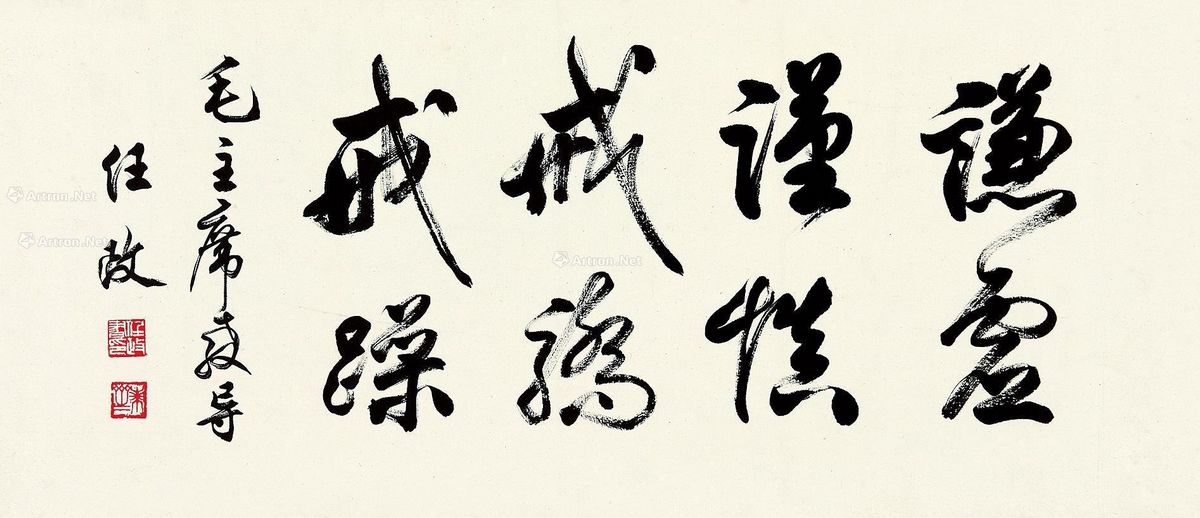 謙虛
謹慎
戒驕
戒躁
毛主席教导
任政
Artron.Net
Artron.Net
Artron.Net